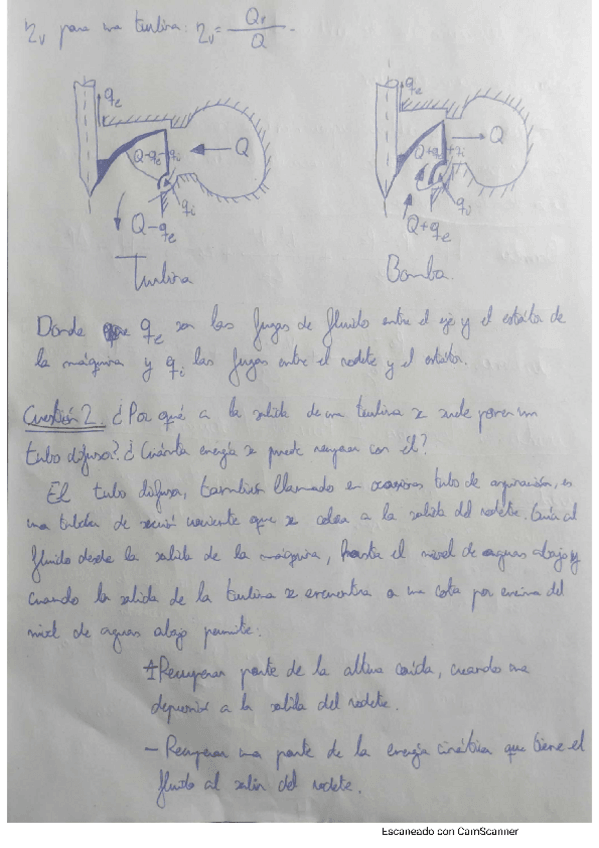 η_v para una turbina: η_v = Q_r / Q.
q_e
Q-q_e-q_i
Q
q_i
Q-q_e
Turbina
q_e
Q+q_e+q_i
Q
q_i
Q+q_e
Bomba
Donde q_e son las fugas de fluido entre el eje y el estátor de
la máquina y q_i las fugas entre el rodete y el estátor.
Cuestión 2. ¿Por qué a la salida de una turbina se suele poner un
tubo difusor? ¿Cuánta energía se puede recuperar con él?
El tubo difusor, también llamado en ocasiones tubo de aspiración, es
una tubería de sección creciente que se coloca a la salida del rodete. Guía al
fluido desde la salida de la máquina, hasta el nivel de aguas abajo y
cuando la salida de la turbina se encuentra a una cota por encima del
nivel de aguas abajo permite:
- Recuperar parte de la altura caída, creando una
depresión a la salida del rodete.
- Recuperar una parte de la energía cinética que tiene el
fluido al salir del rodete.
Escaneado con CamScanner